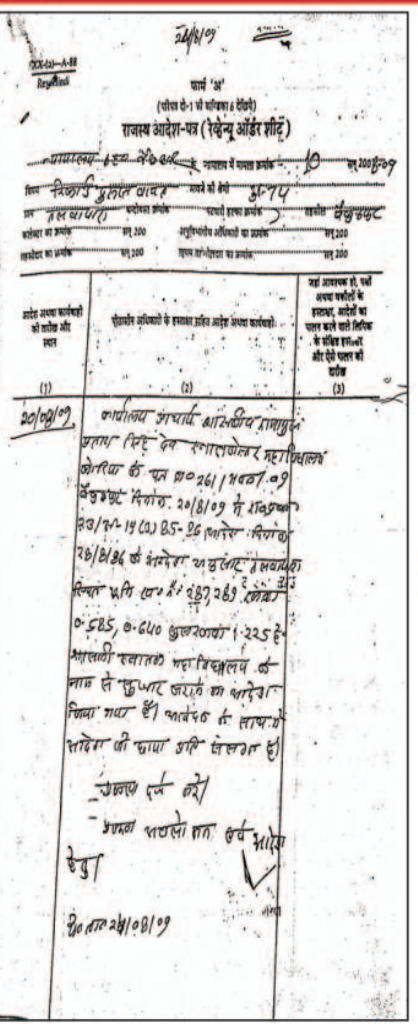 24/8/09
XX-(2)-A-88
Rev. Hindi
फार्म 'अ'
(परिपत्र दो-1 की कण्डिका 6 देखिये)
राजस्व आदेश-पत्र ( रेव्हेन्यू ऑर्डर शीट )
न्यायालय के न्यायालय में मामला क्रमांक 10 सन् 2008-09
विषय रिकार्ड दुरुस्त बाबत मामले की श्रेणी अ-74
ग्राम तलवापारा बन्दोबस्त क्रमांक पटवारी हल्का क्रमांक तहसील बैकुण्ठपुर
कलेक्टर का क्रमांक सन् 200 अनुविभागीय अधिकारी का क्रमांक सन् 200
तहसीलदार का क्रमांक सन् 200 नायब तहसीलदार का क्रमांक सन् 200
आदेश अथवा कार्यवाही की तारीख और स्थान
पीठासीन अधिकारी के हस्ताक्षर सहित आदेश अथवा कार्यवाही
जहां आवश्यक हो, पक्षों अथवा वकीलों के हस्ताक्षर, आदेशों का पालन करने वाले लिपिक के संक्षिप्त हस्ताक्षर और ऐसे पालन की तारीख
(1) (2) (3)
20/08/09
कार्यालय प्राचार्य शासकीय रामानुज
प्रताप सिंह देव स्नातकोत्तर महाविद्यालय
कोरिया के पत्र क्र0 261 / 09
बैकुण्ठपुर दिनांक 20/8/09 में रा0प्र0क्र0
23/अ-19(3) 85-86 आदेश दिनांक
28/8/86 के आदेश तलवापारा
स्थित भूमि ख0नं0 287, 289 रकबा
0.585, 0.640 कुल रकबा 1.225 हे0
शासकीय स्नातक महाविद्यालय के
नाम से सुधार कराने का आदेश
किया गया है। आवेदन के साथ में
आदेश की छाया प्रति संलग्न है।
- प्रकरण दर्ज करें।
आदेश
हेतु।
24/08/09